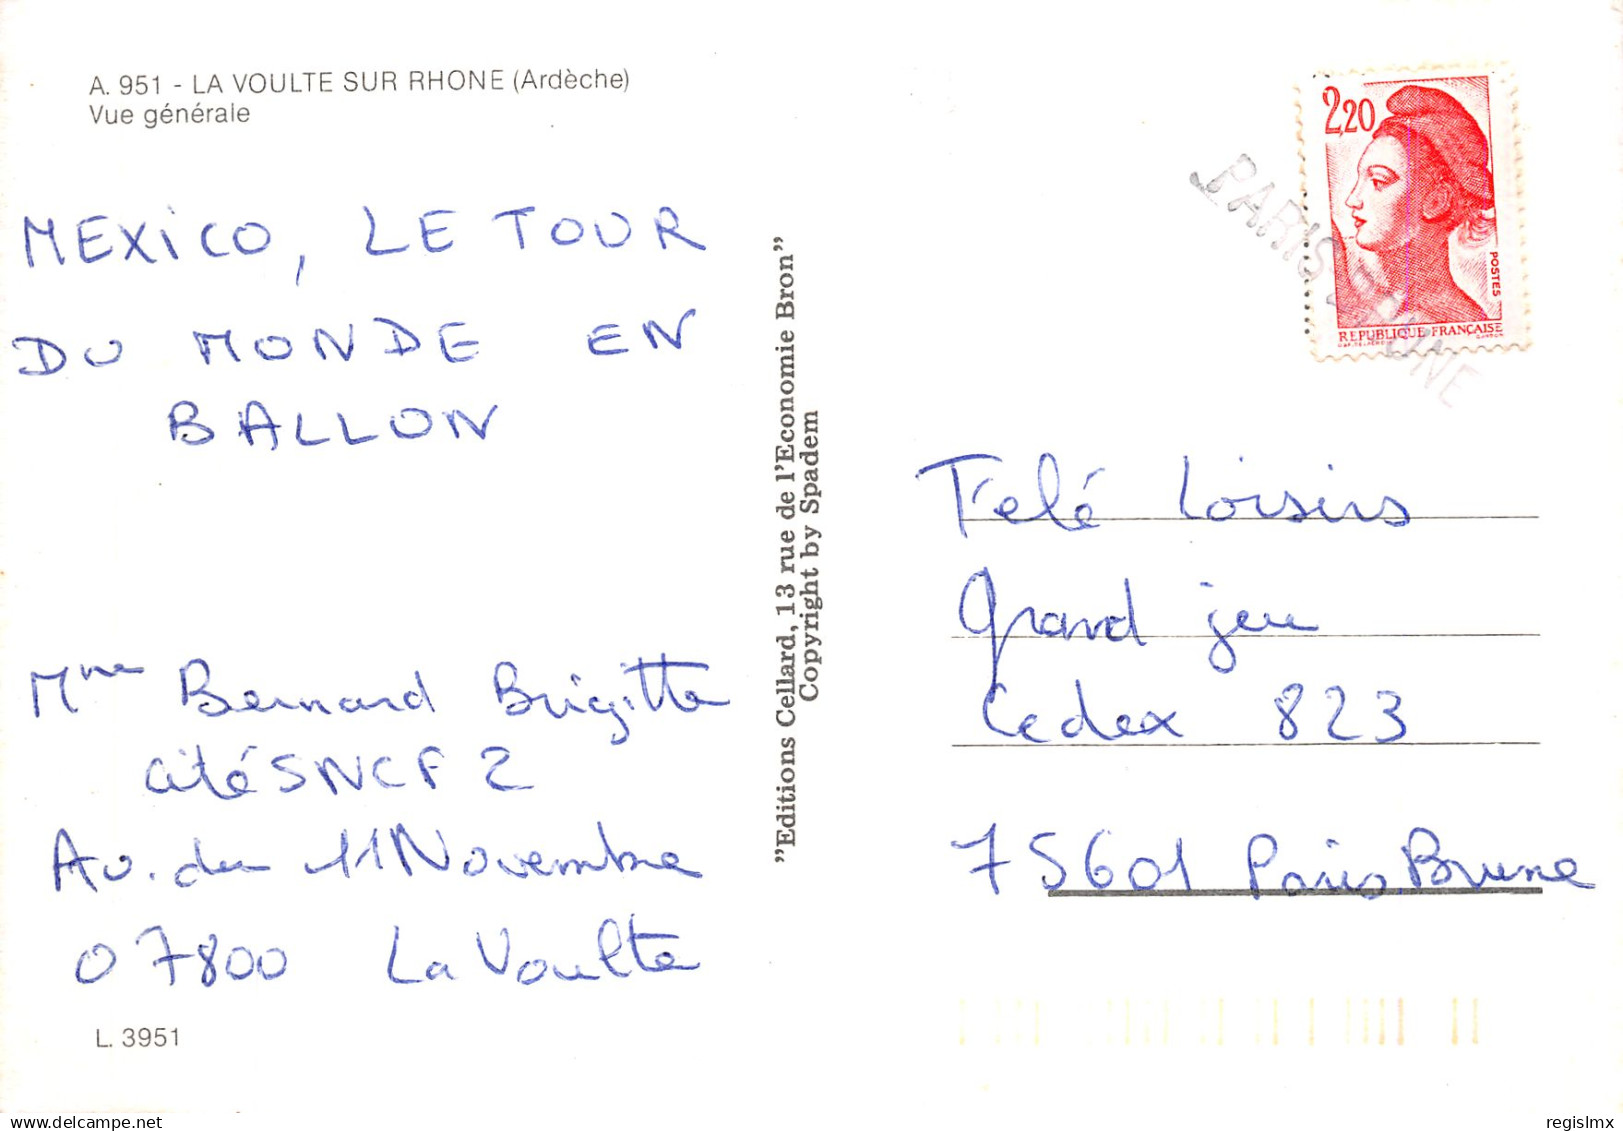 A. 951 - LA VOULTE SUR RHONE (Ardèche)
Vue générale
MEXICO, LE TOUR
DU MONDE EN
BALLON
Mme Bernard Brigitte
cité SNCF 2
Av. du 11 Novembre
07800 La Voulte
L. 3951
"Editions Cellard, 13 rue de l'Economie Bron"
Copyright by Spadem
2,20
POSTES
REPUBLIQUE FRANÇAISE
PARIS BRUNE
Télé Loisirs
Grand jeu
Cedex 823
75601 Paris Brune
www.delcampe.net
regislmx